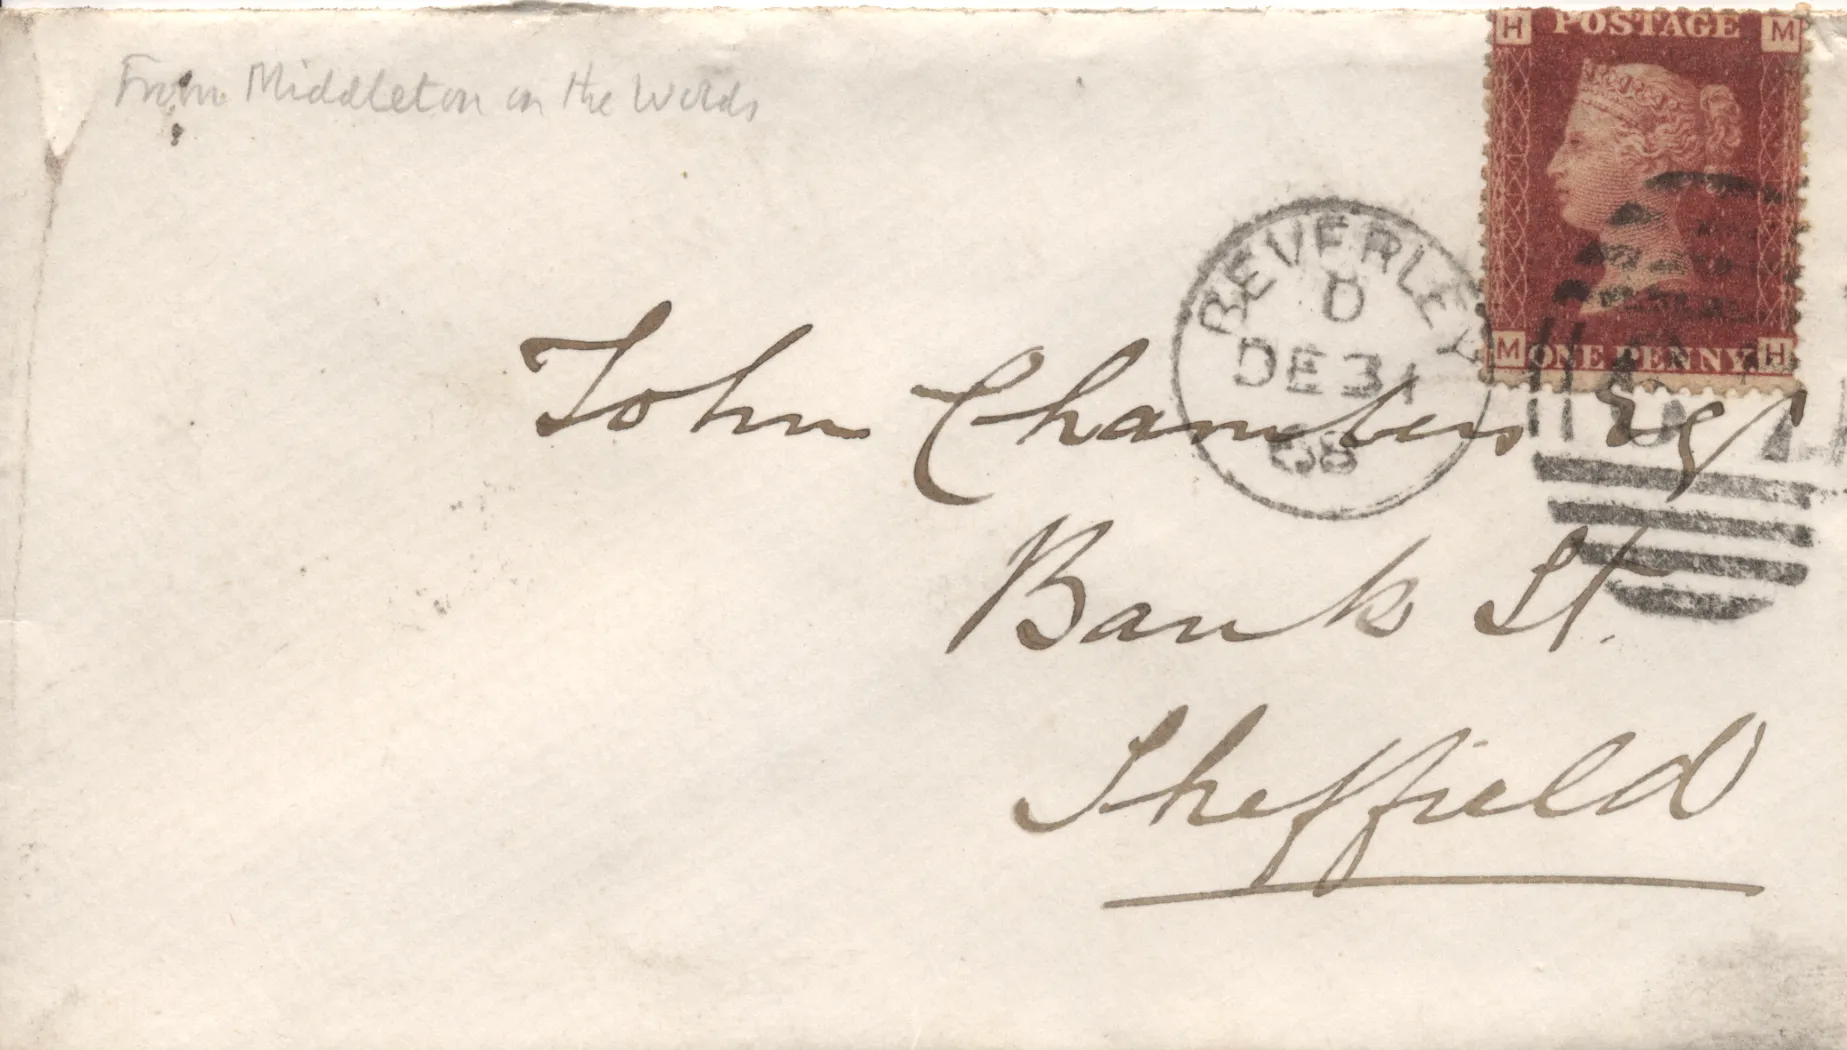 From Middleton on the Wolds
H POSTAGE M
M ONE PENNY H
BEVERLEY
D
DE 31
68
John Chambers Esq
Bank St.
Sheffield